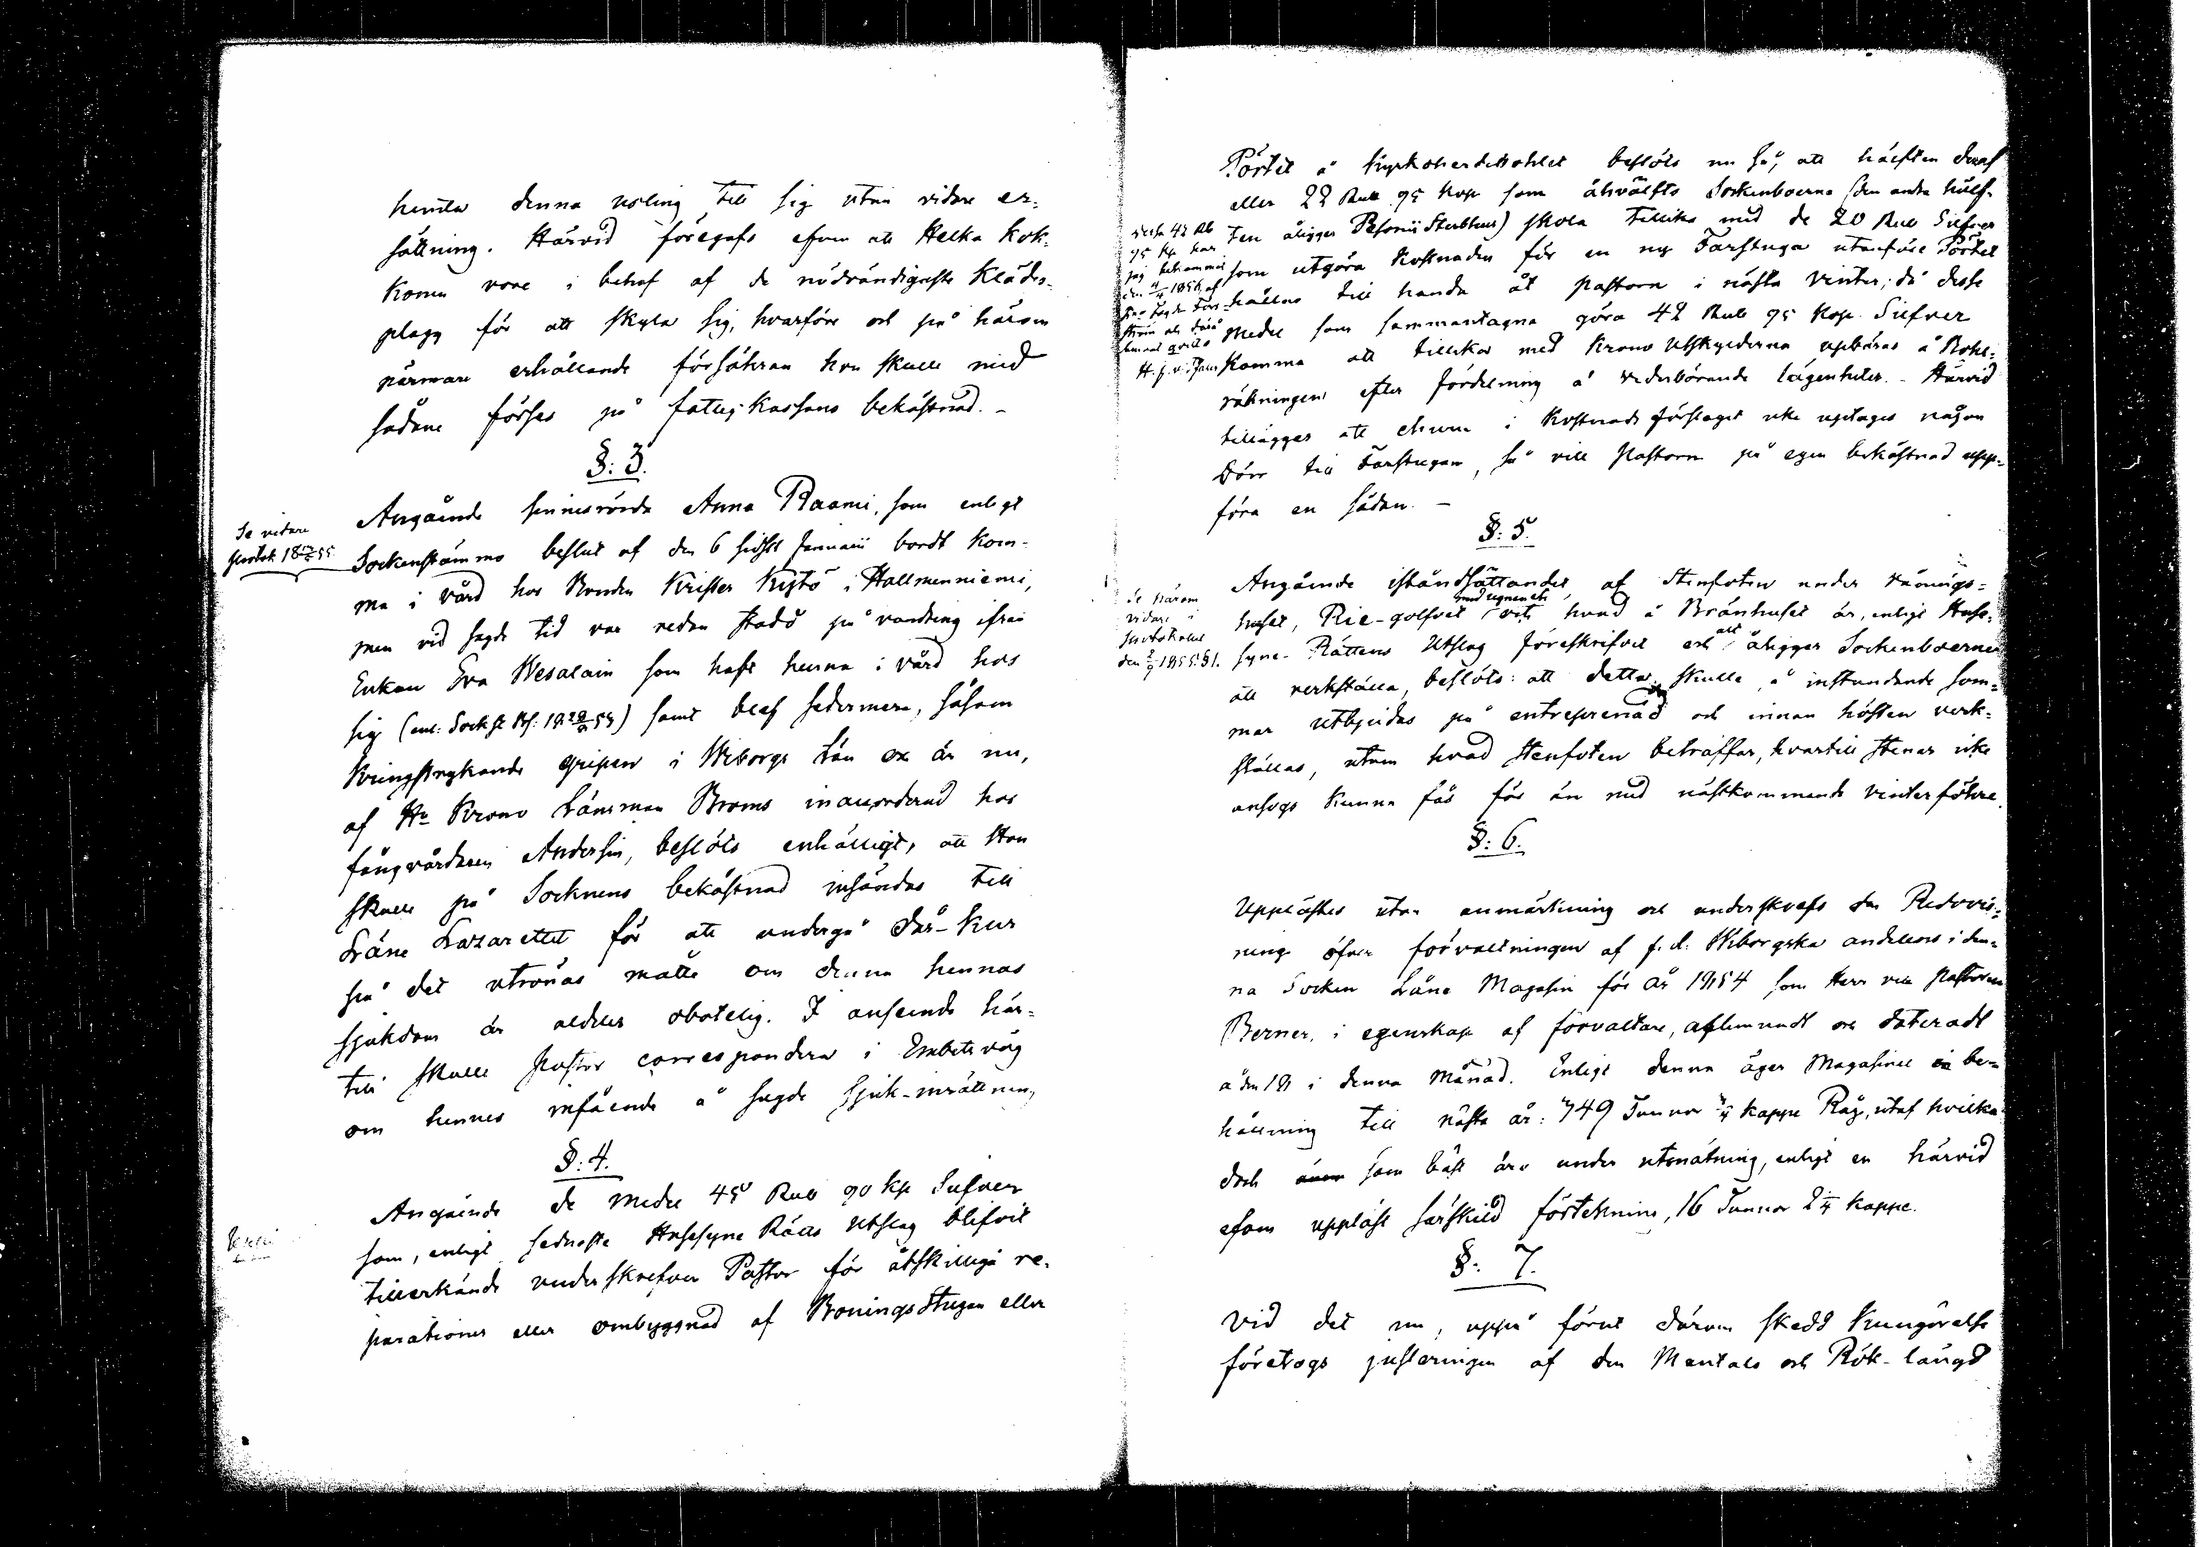 hemta denna usling till sig utan vidare er-
sättning. Härvid föregafs efven att Helka Kok-
konen vore i behof af de nödvändigaste Kläds-
plagg för att skyla sig, hvarföre och på härom
närmare erhållande försäkran hon skulle med
sådane förses på fattig Kassans bekåstnad. -
§: 3.
Angående sinnesrörda Anna Raami, som enligt
Sockenstämmo beslut af den 6 sistl. Januarii bordt kom-
ma i vård hos Bonden Krister Kystö i Hallmenniemi,
men vid sagde tid var redan stadd på vandring ifrån
Enkan Eva Wesalain som haft henne i vård hos
sig (enl. Sockst. Pr: 18 54) samt blef sedermera, såsom
Kringstrykande gripen i Wiborgs Län och är nu,
af Hr Krono Länsman Broms inackorderad hos
fångvårdaren Andersin, beslöts enhälligt, att Hon
skulle på Socknens bekåstnad insändas till
Läne Lazarettet för att undergå dår-kur
på det utrönas måtte om denna hennas
sjukdom är aldeles obotelig. I anseende här-
till skulle Pastor correspondera i Embetsväg
om hennes infående å sagde Sjuk-inrättning,
§: 4.
Angående de Medel 45 Rub 90 kp Silfver
som, enligt sednaste Husesyne Rätts Utslag blifvit
tillerkände underskrefven Pastor för åtskilliga re-
parationer eller ombyggnad af Boningsstugan eller
Se vidare
Protok. 18 55
Pörtet å Kyrkoherdebohlet beslöts nu så, att hälften deraf
eller 22 Rub. 95 Kop som åhvälfts Sockenboerna (den andra hälf-
ten åligger Sterbhus) skola tillika med de 20 Rub Silfver
som utgöra Kostnaden för en ny Farstuga utanföre Pörtet
hållas till handa åt Pastorn i nästa Vinter; då desse
Medel som sammantagna göra 42 Rub 95 Kop. Silfver
komma att tillika med Krono Utskylderna uptäras å Bohl-
räkningen efter fördelning å vederbörande lägenheter. - Härvid
tillägges att ehuru i Kostnads förslaget icke uptages någon
Dörr till Farstugan, så vill Pastorn på egen bekåstnad upp-
föra en sådan. -
§: 5.
Angående iståndsättandet af Stenfoten under
huset, Rie-golfvet hvad å Brånhuset är, enligt Huse-
syne-Rättens Utslag föreskrifvit och att åligger Sockenboerne
att verkställa, beslöts: att detta skulle å instundande Som-
mar utbjudas på entreprenad och innan hösten verk-
ställas, utom hvad Stenfoten beträffar, hvartill Stenar icke
ansågs kunna fås för än med nästkommande vinterföhre.
§: 6.
Upplästes utan anmärkning och underskrefs den Redovis-
ning öfver förvaltningen af f. d. Wiborgska andelens i den-
na Socken Låne Magasin för år 1854 som Herr vice Pastoren
Berner, i egenskap af förvaltare, aflemnadt och dateradt
å den 18 i denna Månad. Enligt denna äger Magasinet i be-
hållning till nästa år: 749 Tunnor kappe Råg, utaf hvilka
doch som bäst äro under utmätning, enligt en härvid
efven uppläst särskild förtekning, 16 Tunnor 2 kappe.
§: 7.
Vid det nu, uppå förut därom skedd Kungörelse
företogs justeringen af den Mantals och Rök-längd
42 Rb
95 Kp har
jag
den 1856 af
H. J. v. Pastor
Se härom
vidare i
Protokollet
den 1855 § 1.